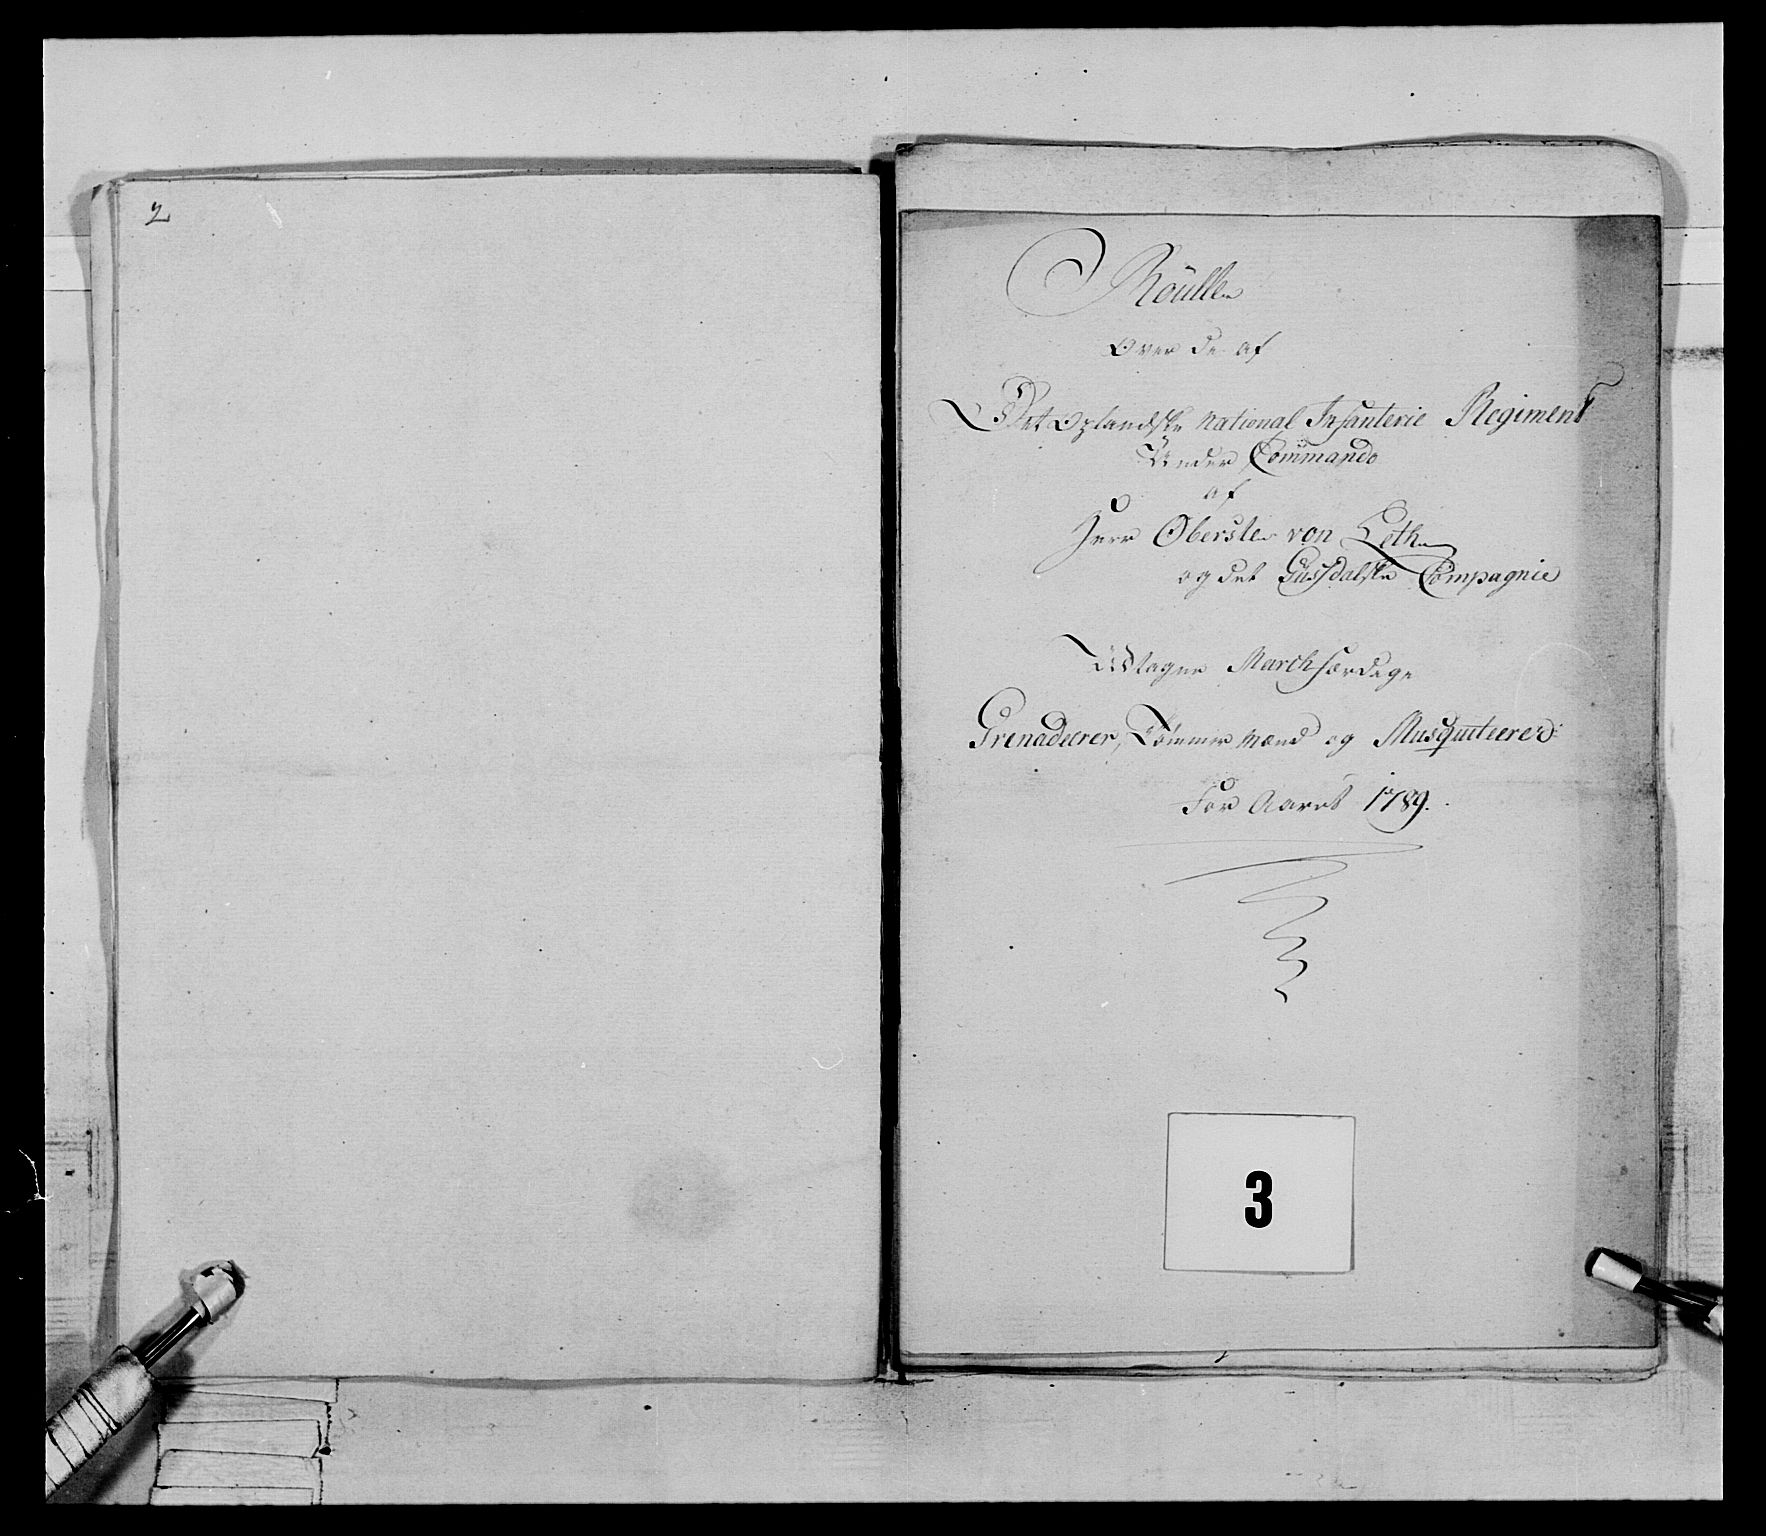 2
Roulle
Over de af
Det Oplandske National Infanterie Regiment
Under Commando
af
Herr Oberste von Leth
og det Gusdalske Compagnie
Udtagne Marchfærdige
Grenadeerer, Tømmer Mænd og Musqueteerer
For Aaret 1789.
3